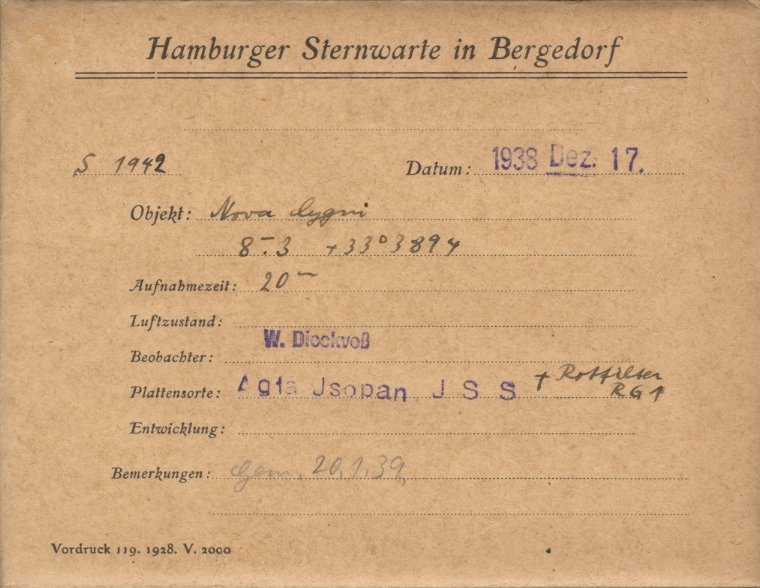 Hamburger Sternwarte in Bergedorf
S 1942 Datum: 1938 Dez. 17.
Objekt: Nova Cygni
8ᵐ.3 +33°3894
Aufnahmezeit: 20ᵐ
Luftzustand:
Beobachter: W. Dieckvoß
Plattensorte: Agfa Jsopan J S S + Rotfilter RG1
Entwicklung:
Bemerkungen: Gem. 20.1.39.
Vordruck 119. 1928. V. 2000